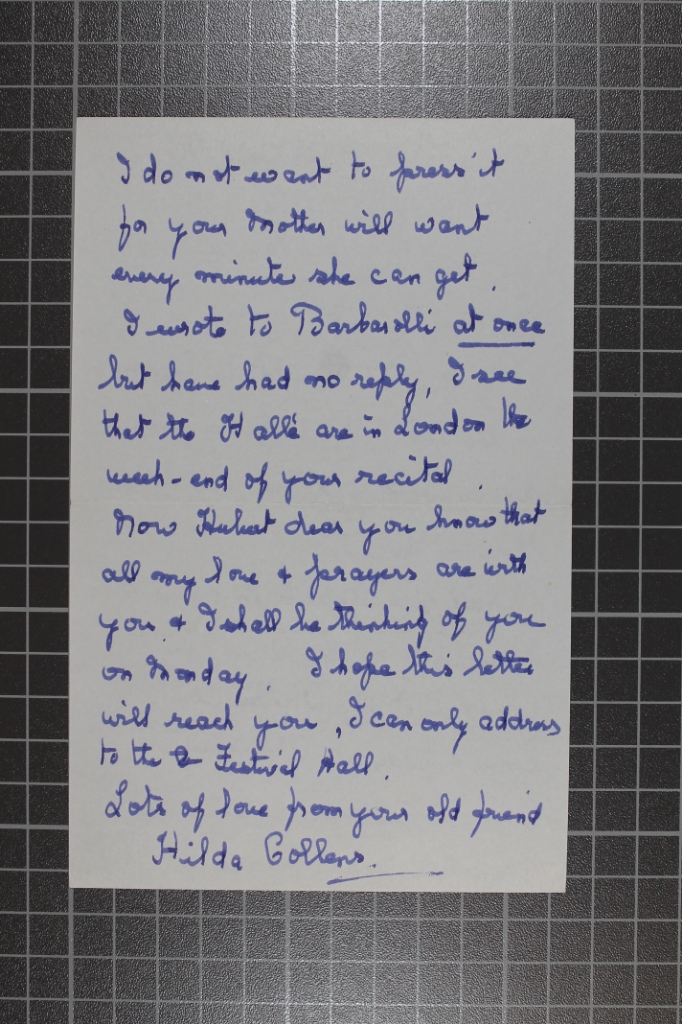 I do not want to press it
for your Mother will want
every minute she can get.
I wrote to Barbarolli at once
but have had no reply, I see
that the Hallé are in London the
week-end of your recital.
Now Hubert dear you know that
all my love & prayers are with
you & I shall be thinking of you
on Monday. I hope this letter
will reach you, I can only address
to the Festival Hall.
Lots of love from your old friend
Hilda Collens.